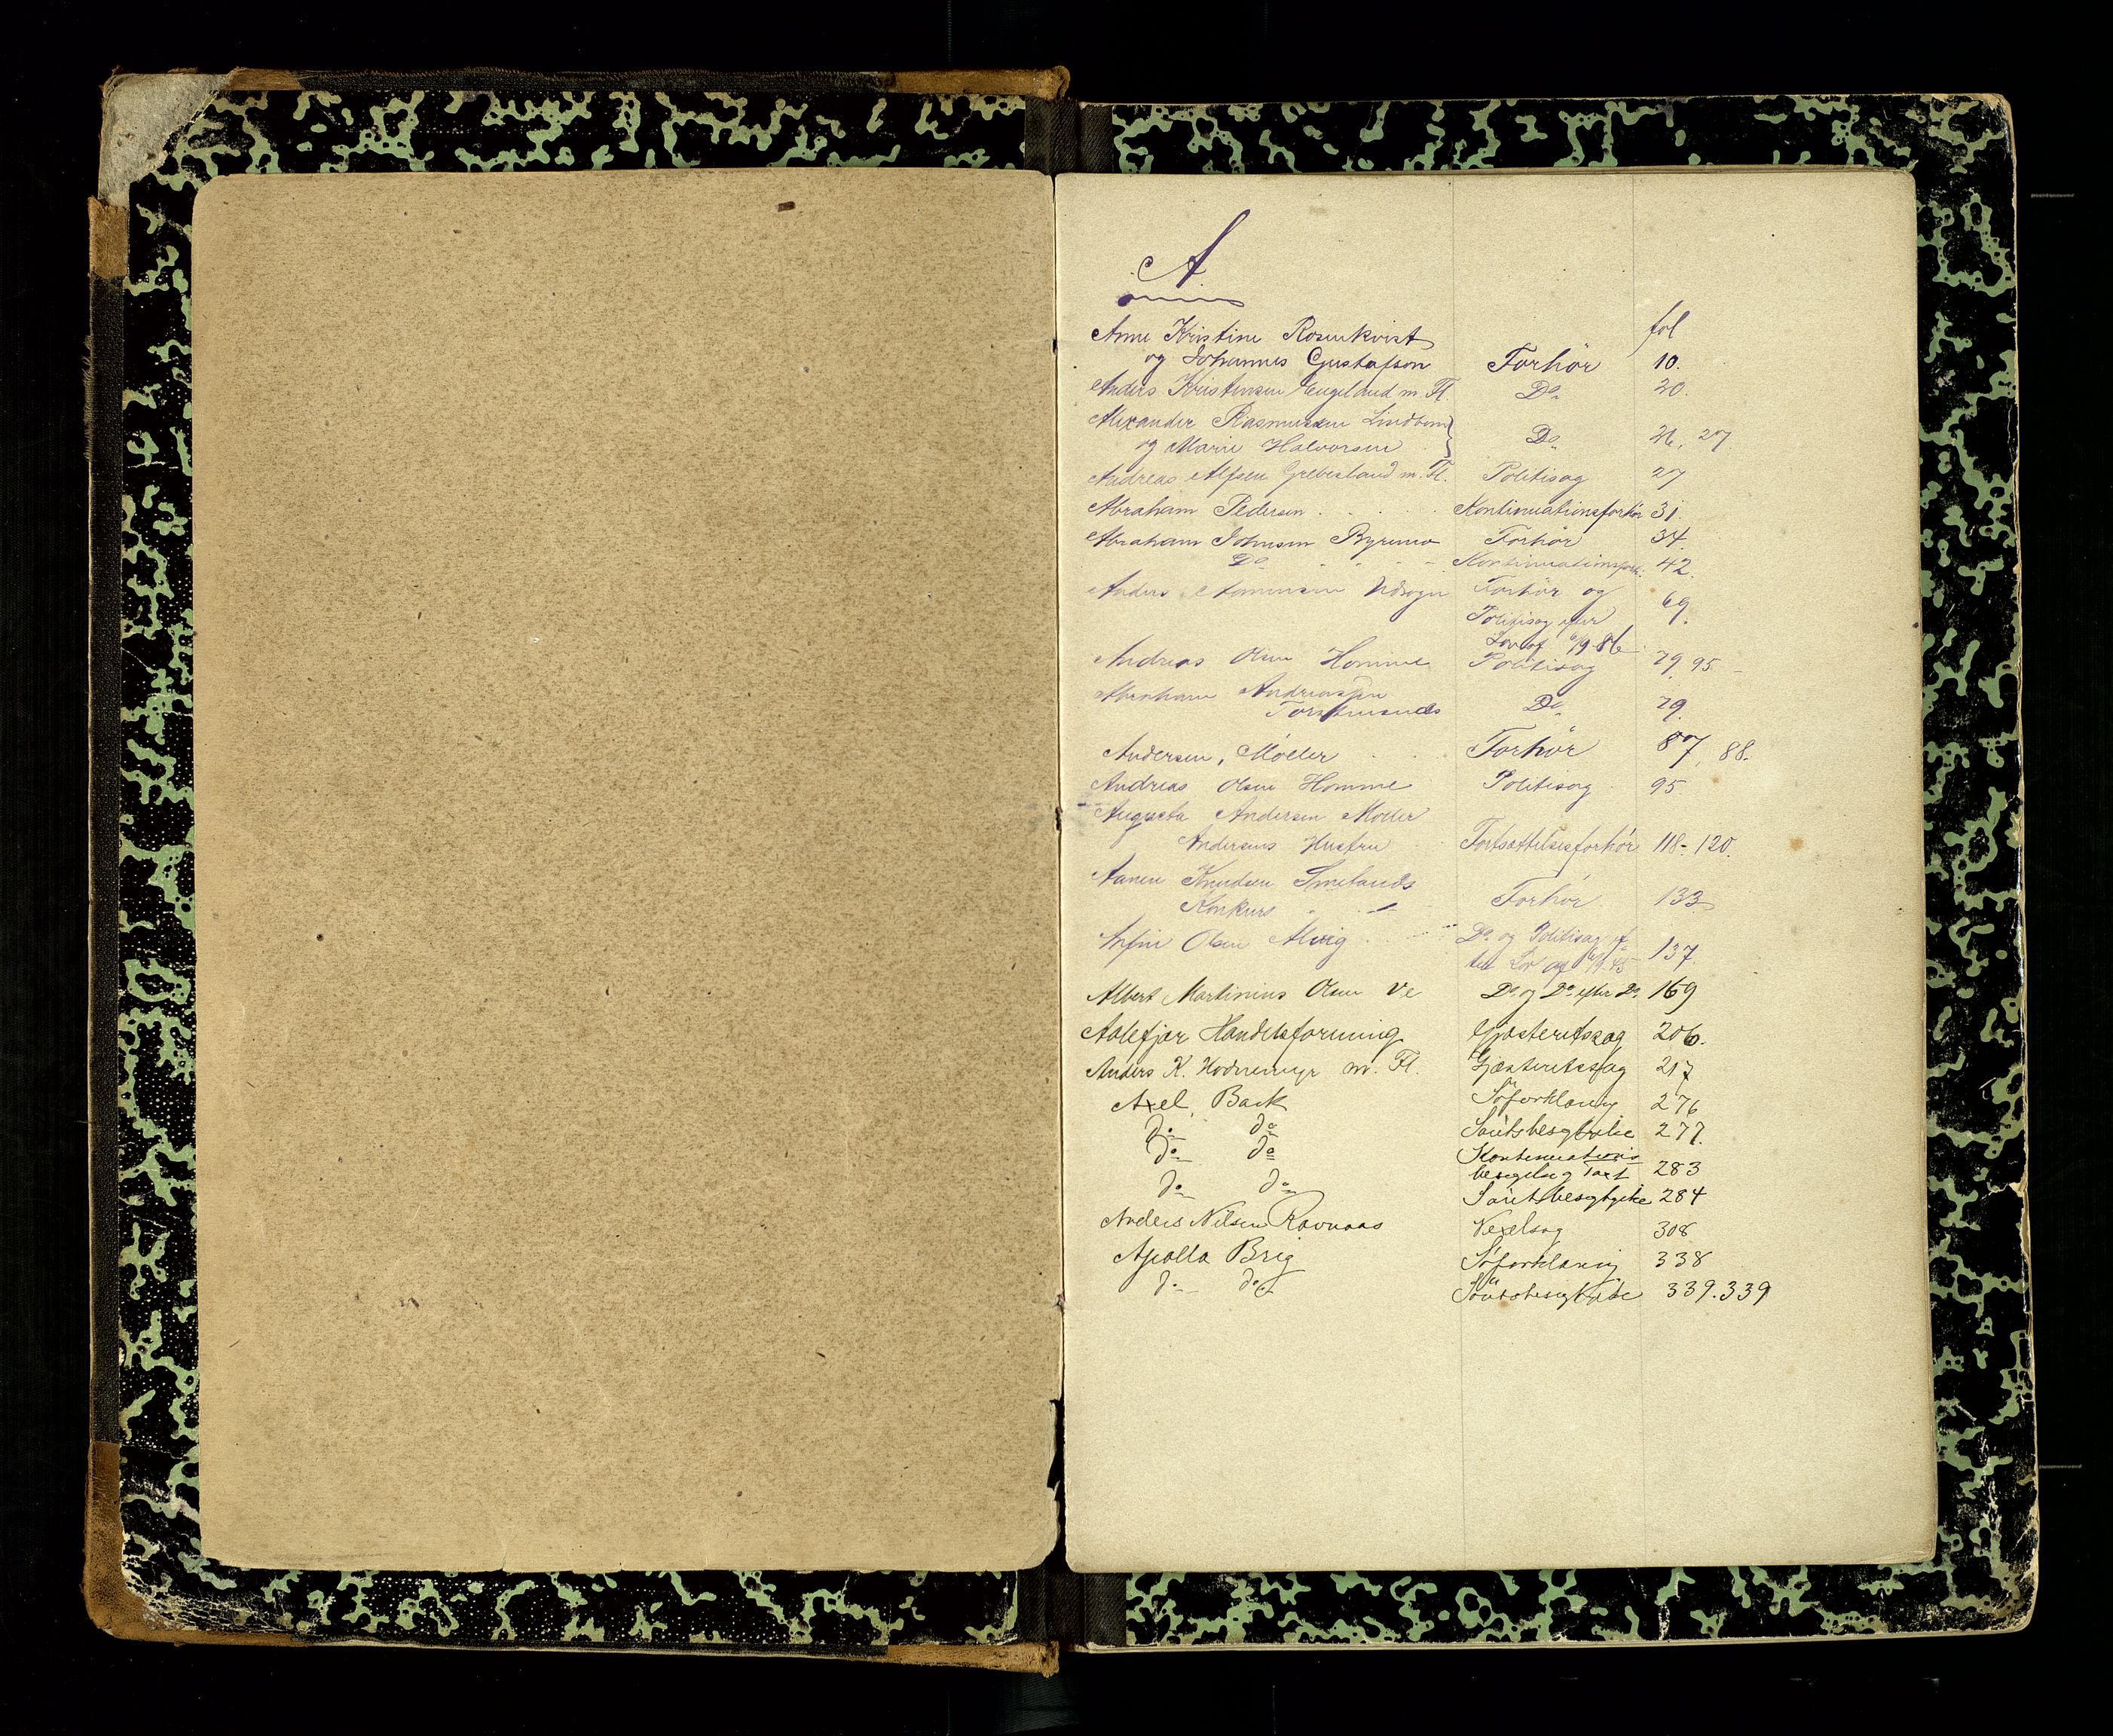 A
fol
Anne Kristine Rosenkvist
og Johannes Gustafson Forhör 10.
Anders Kristensen Engeland m. Fl. Do 20.
Alexander Rasmussen Lindbom
og Marie Halvorsen Do 26, 27
Andreas Alfsen Grebesland m. Fl. Politisag 27
Abraham Pedersen Kontinuationsforhör 31.
Abraham Johnsen Byremo Forhör 34.
Do Kontinuationsforh. 42.
Anders Forhör og 69.
Politisag efter
Lov af 6/9-86
Andreas Olsen Homme Politisag 79, 95
Abraham Andreassen
Torstensnæs Do 79.
Andersen, Möller Forhör 87, 88.
Andreas Olsen Homme Politisag 95
Augusta Andersen Möller
Andersens Hustru Fortsættelsesforhör 118-120.
Aanen Knudsen Smelands
Konkurs Forhör 133
Anfin Olsen Alvig Do og Politisag ef-
ter Lov af 137.
Albert Martinius Olsen Ve Do og Do efter Do 169
Aalefjær Handelsforening Gjæsteretssag 206.
Anders K. Hodnemyr m. Fl. Gjæsteretssag 217
Axel, Bark Söforklaring 276
do do Söretsbesigtelse 277.
do do Kontinuations
besigtelse og Taxt 283
do do Söretsbesigtigelse 284
Anders Nilsen Ravnaas Vexelsag 308
Apollo Brig Söforklaring 338
do do Söretsbesigtigelse 339.339